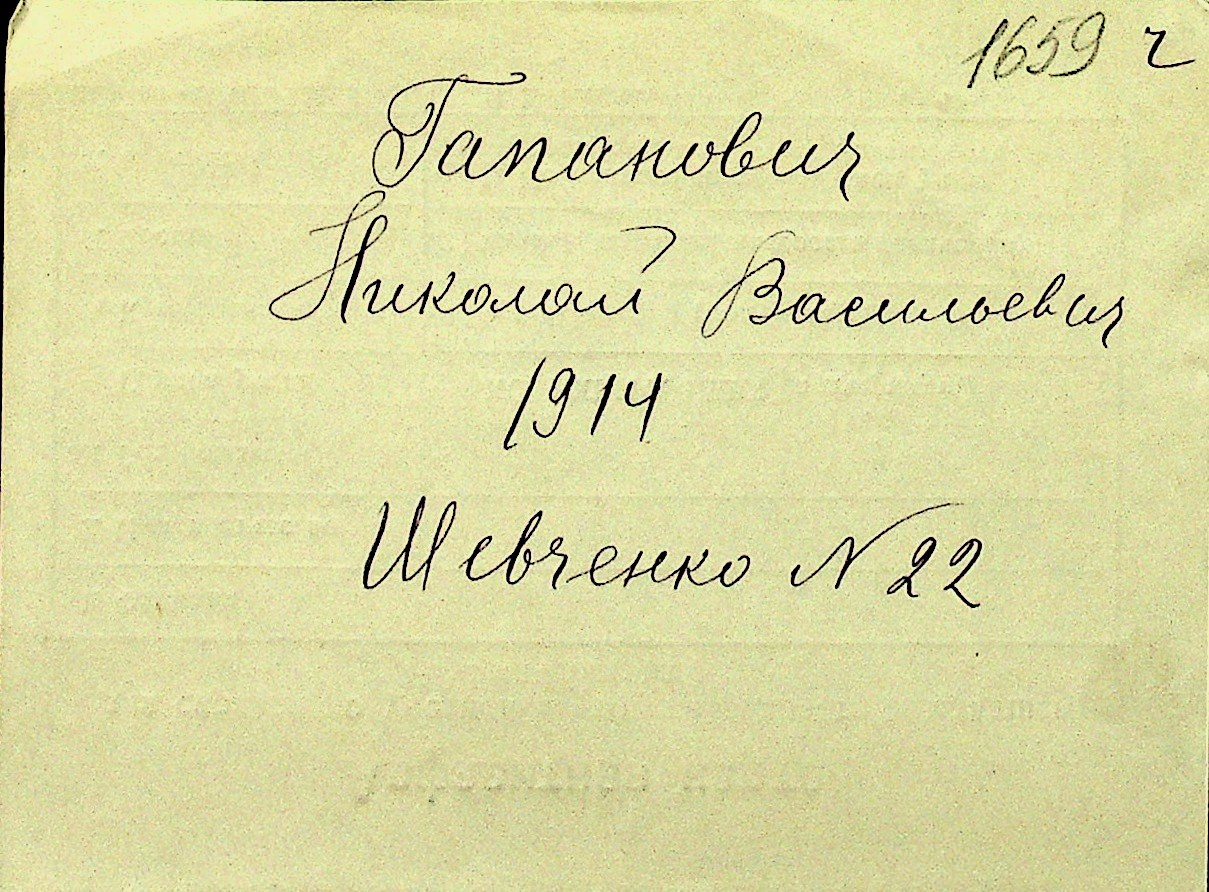 1659 г
Гапанович
Николай Васильевич
1914
Шевченко № 22